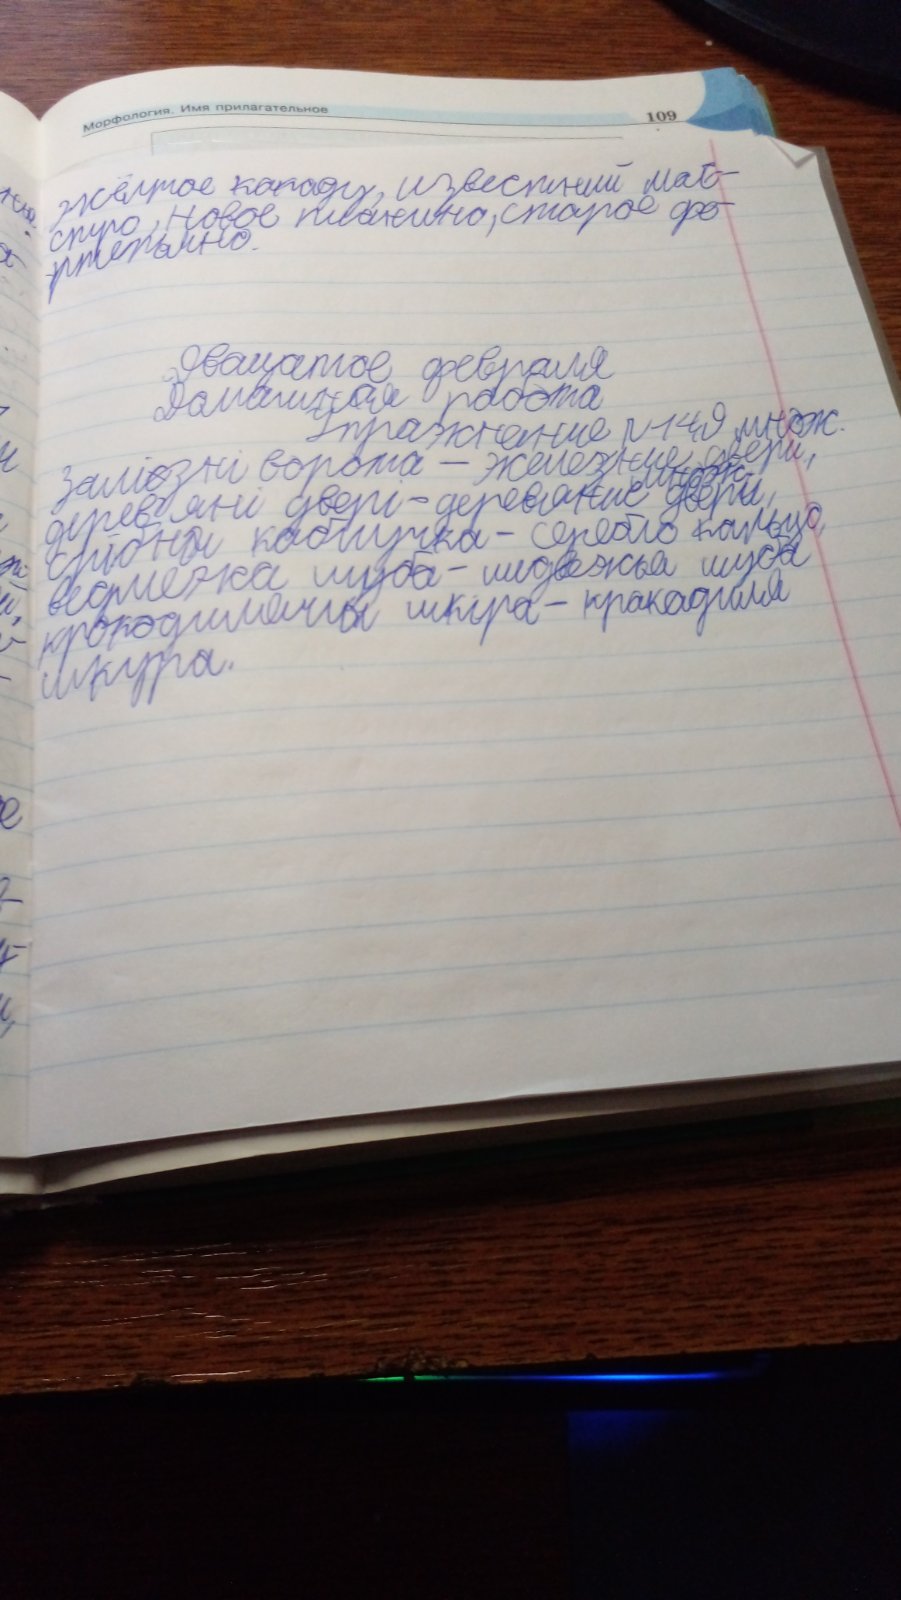 Морфология. Имя прилагательное
109
жёлтое какаду, известний маэ-
стро, новое пианино, старое фо-
ртепьяно.
Двацатое февраля
Домашняя работа
Упражнение №149 множ.
Залізні ворота – железние двери,
множ.
дерев'яні двері – деревяние двери,
срібна каблучка – серебло кальцо,
ведмежа шуба – мидвежья шуба
крокодиляча шкіра – кракадиля
шкура.